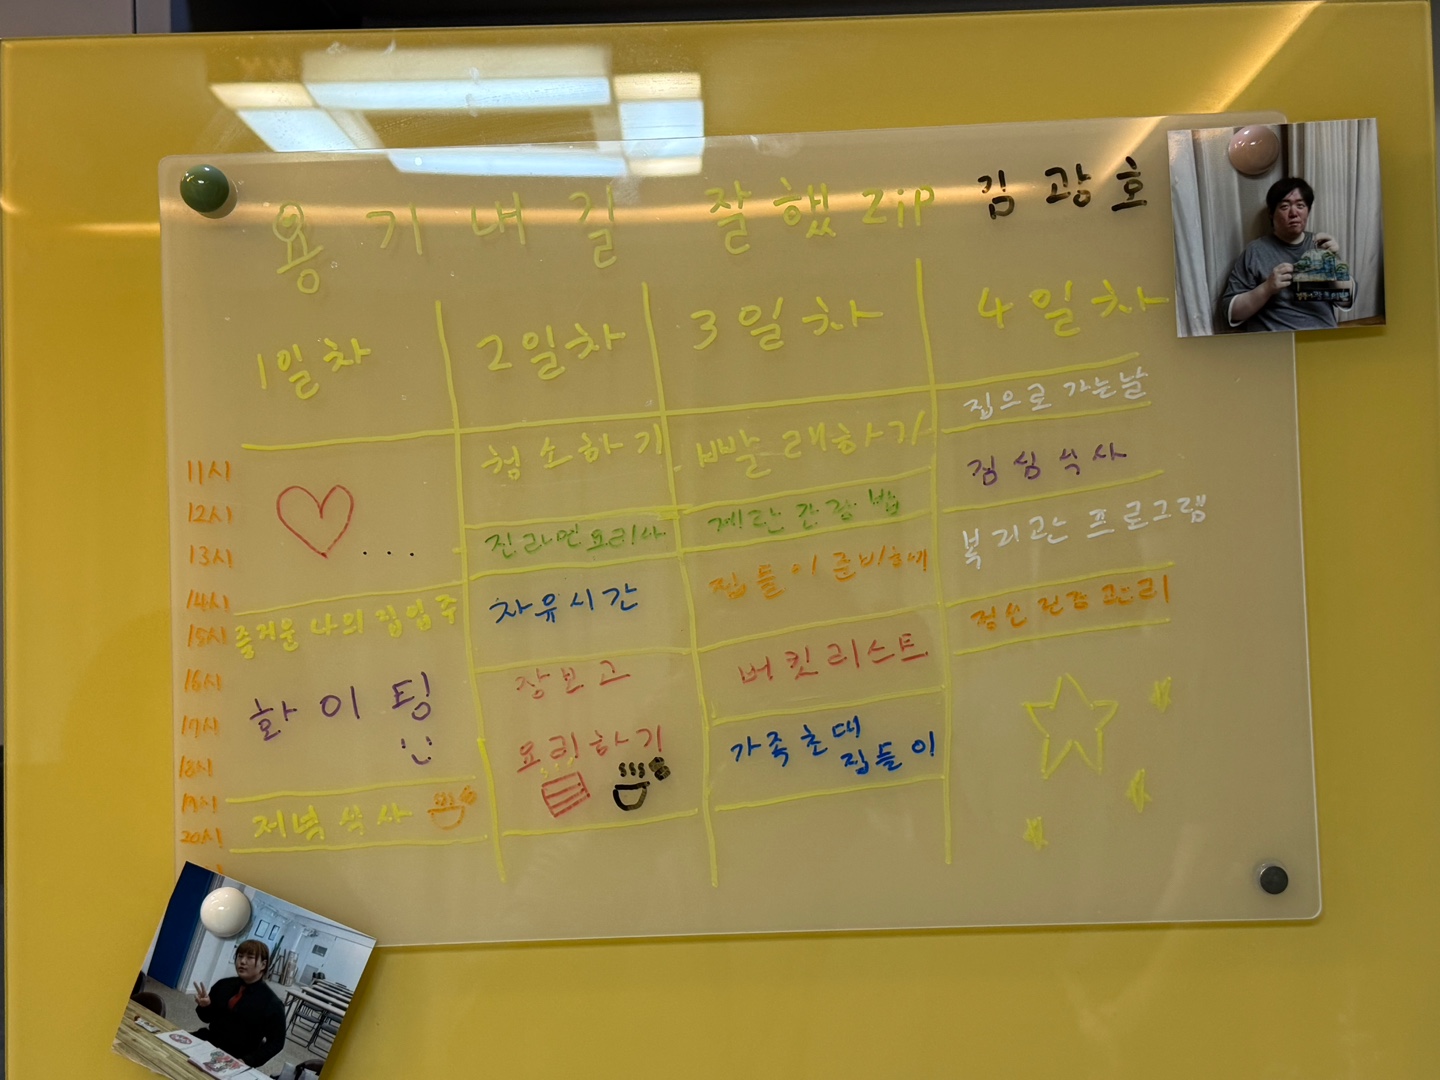 용기내길 잘했zip 김광호
1일차 2일차 3일차 4일차
집으로 가는날
11시 청소하기 빨래하기 점심식사
12시 진라면요리사 계란간장밥 복지관 프로그램
13시 ...
14시 자유시간 집들이준비
15시 즐거운 나의 집입주 정신건강관리
16시 장보고 버킷리스트
17시 화이팅
18시 요리하기 가족초대
집들이
19시 저녁식사
20시